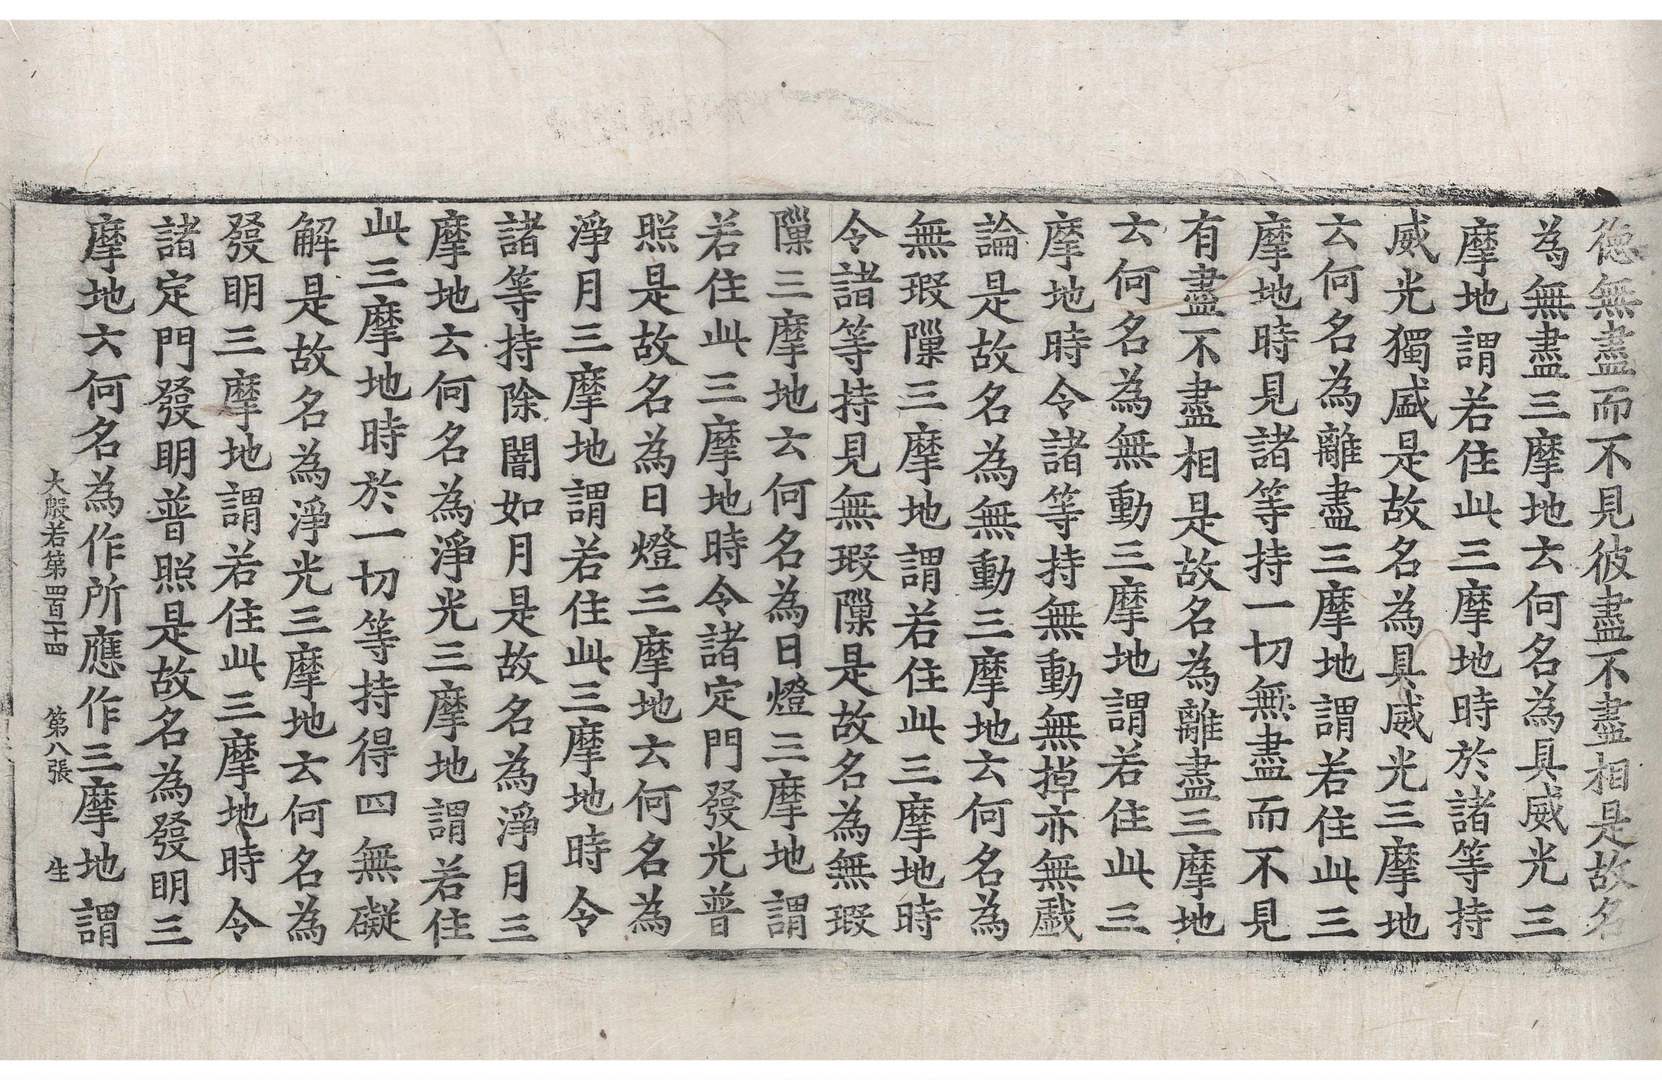 德無盡而不見彼盡不盡相是故名
為無盡三摩地云何名為具威光三
摩地謂若住此三摩地時於諸等持
威光獨盛是故名為具威光三摩地
云何名為離盡三摩地謂若住此三
摩地時見諸等持一切無盡而不見
有盡不盡相是故名為離盡三摩地
云何名為無動三摩地謂若住此三
摩地時令諸等持無動無掉亦無戲
論是故名為無動三摩地云何名為
無瑕隟三摩地謂若住此三摩地時
令諸等持見無瑕隟是故名為無瑕
隟三摩地云何名為日燈三摩地謂
若住此三摩地時令諸定門發光普
照是故名為日燈三摩地云何名為
淨月三摩地謂若住此三摩地時令
諸等持除闇如月是故名為淨月三
摩地云何名為淨光三摩地謂若住
此三摩地時於一切等持得四無礙
解是故名為淨光三摩地云何名為
發明三摩地謂若住此三摩地時令
諸定門發明普照是故名為發明三
摩地云何名為作所應作三摩地謂
大般若第四百十四 第八張 生